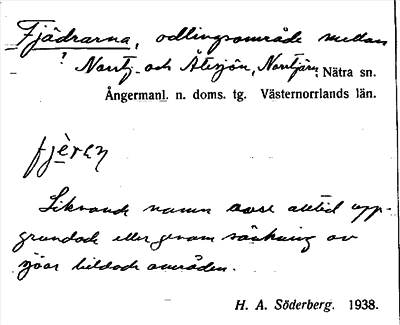 Fjädrarna, odlingsområde mellan
? Norrtj. och Åtesjön, Norrtjärn, Nätra sn.
Ångermanl. n. doms. tg. Västernorrlands län.
fjè̱ren
Liknande namn avse alltid upp-
grundade eller genom sänkning av
sjöar bildade områden.
H. A. Söderberg. 1938.